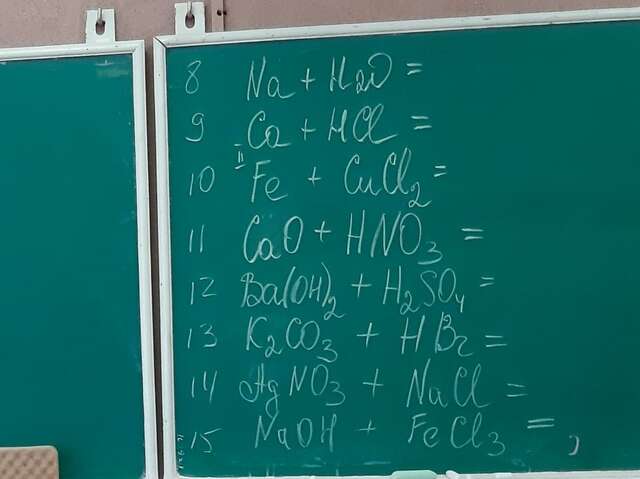 8 Na + H₂O =
9 Ca + HCl =
10 Fe + CuCl₂ =
11 CaO + HNO₃ =
12 Ba(OH)₂ + H₂SO₄ =
13 K₂CO₃ + HBr =
14 AgNO₃ + NaCl =
15 NaOH + FeCl₃ =